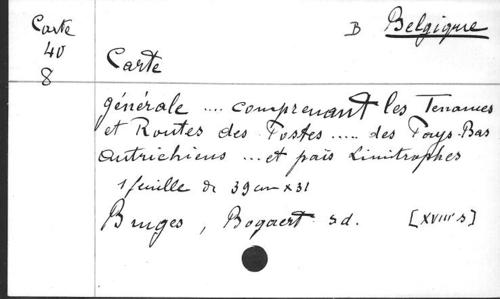 Carte
40
8
B Belgique
Carte
générale .... comprenant les Tenames
et Routes des Postes ..... des Pays-Bas
autrichiens ... et païs Limitrophes
1 feuille de 39 cm x 31
Bruges, Bogaert s.d. [XVIII s]